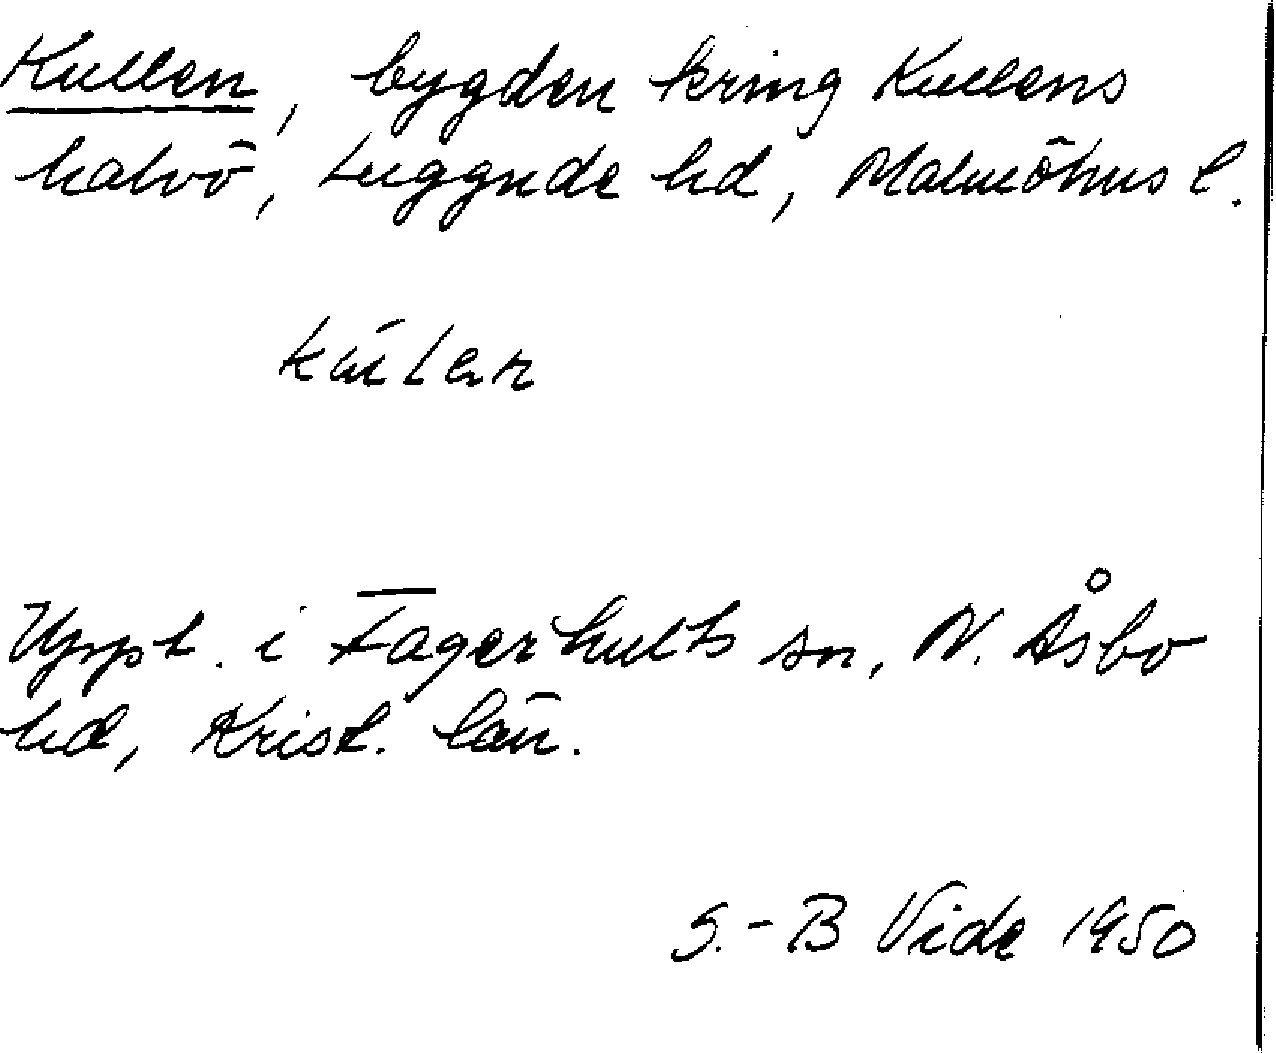 Kullen, bygden kring Kullens
halvö, Luggude hd, Malmöhus l.
Uppt. i Fagerhults sn, N. Åsbo
hd, Krist. län.
S.-B Vide 1950